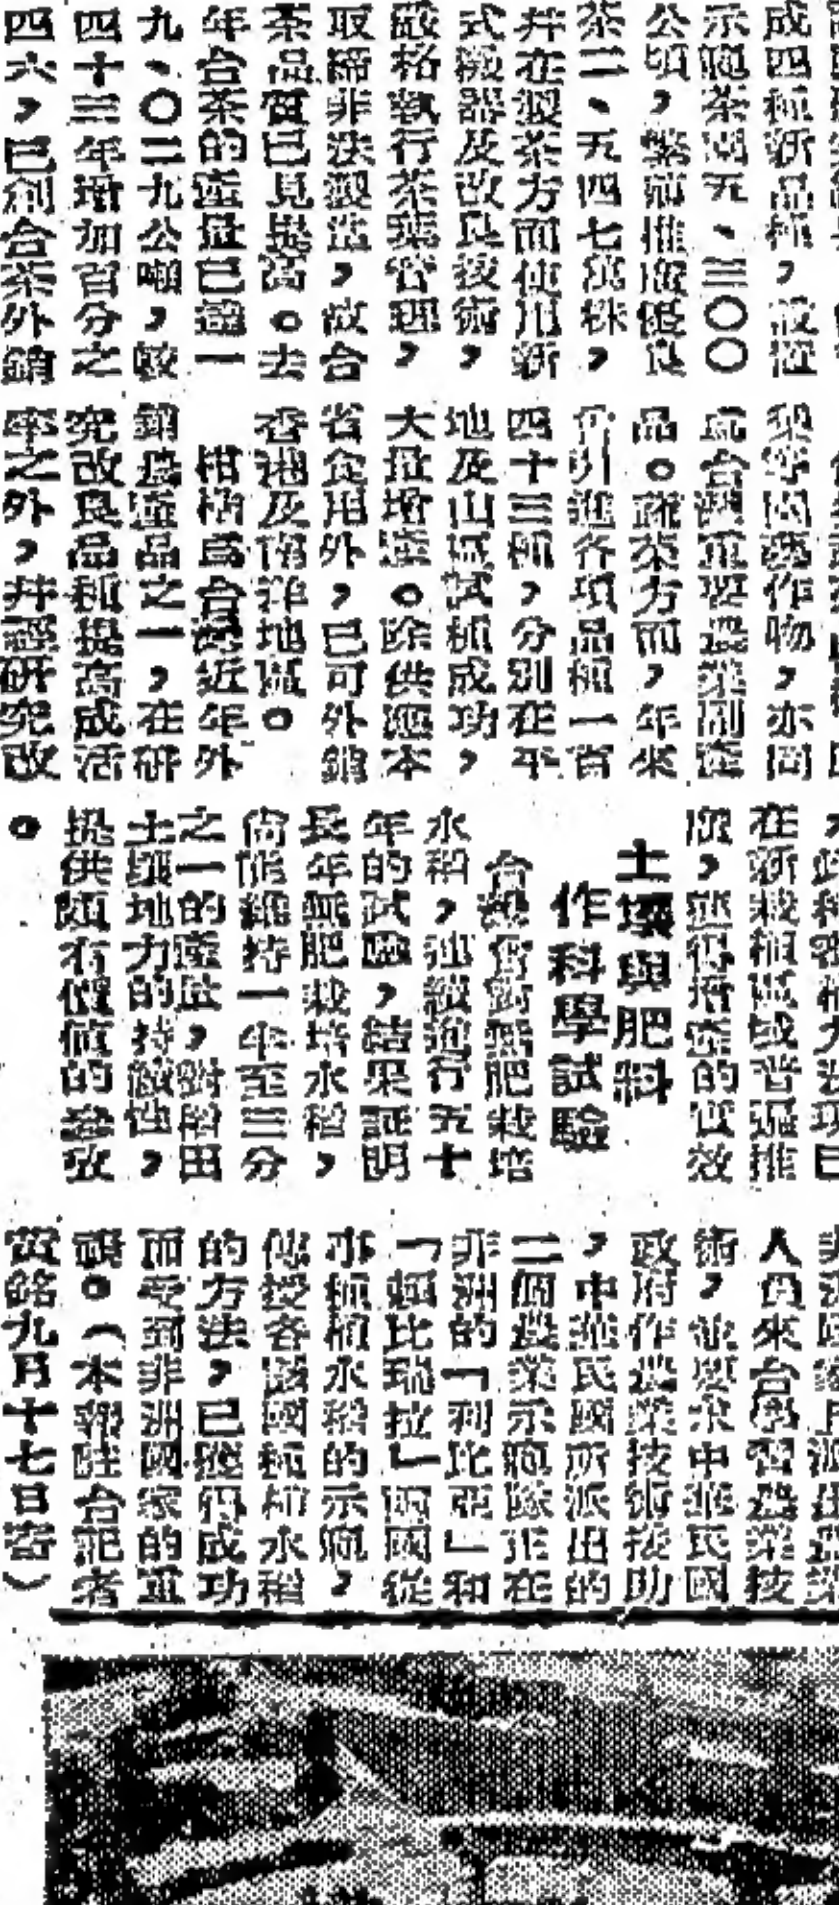 成四種新品種，設置
示範茶園五、三〇〇
公頃，繁殖推廣優良
茶二、五四七萬株，
并在製茶方面使用新
式機器及改良技術，
嚴格執行茶葉管理，
取締非法製造，故台
茶品質已見提高。去
年台茶的產量已達一
九、〇二九公噸，較
四十三年增加百分之
四六，已創台茶外銷
梨等園藝作物，亦同
為台灣重要農業副產
品。蔬菜方面，年來
曾引進各項品種一百
四十三種，分別在平
地及山區試種成功，
大量增產。除供應本
省食用外，已可外銷
香港及南洋地區。
柑桔為台灣近年外
銷農產品之一，在研
究改良品種提高成活
率之外，并經研究改
在新栽種區域普遍推
廣，獲得增產的實效
土壤與肥料
作科學試驗
台灣曾對無肥栽培
水稻，連續進行五十
年的試驗，結果証明
長年無肥栽培水稻，
尚能維持一半至三分
之一的產量，對稻田
土壤地力的持續性，
提供頗有價值的參攷
。
人員來台學習農業技
術，並要求中華民國
政府作農業技術援助
，中華民國所派出的
二個農業示範隊正在
非洲的「利比亞」和
「賴比瑞拉」兩國從
事種植水稻的示範，
傳授各該國種植水稻
的方法，已獲得成功
而受到非洲國家的重
視。（本報駐台記者
黃銘九月十七日寄）